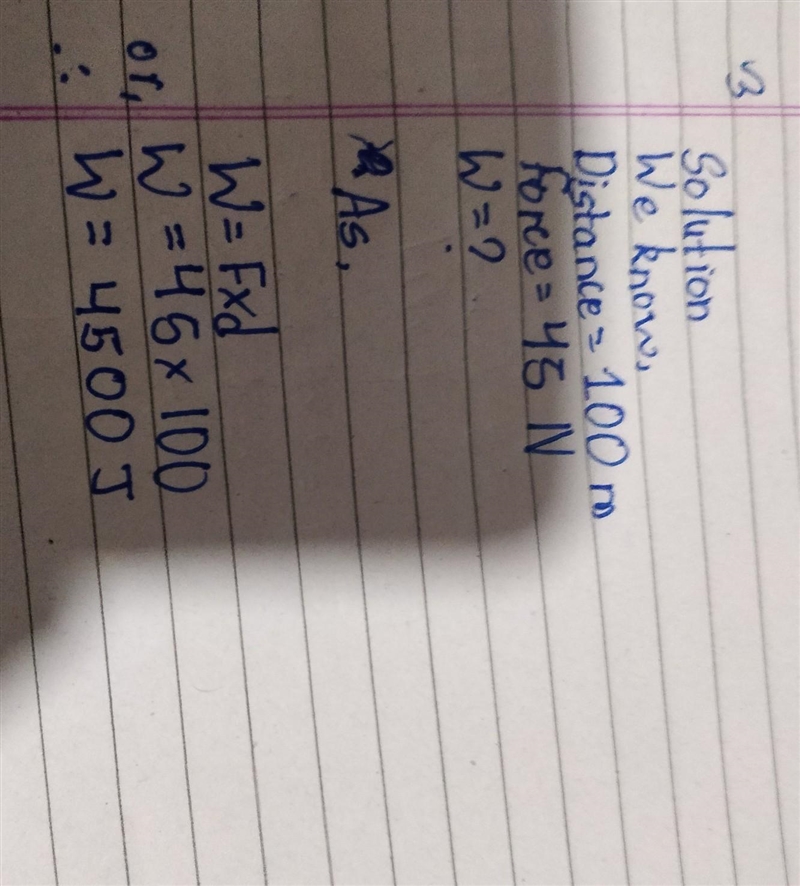 3
Solution
We know,
Distance = 100 m
force = 45 N
W = ?
As,
W = F×d
or, W = 45 × 100
∴ W = 4500 J